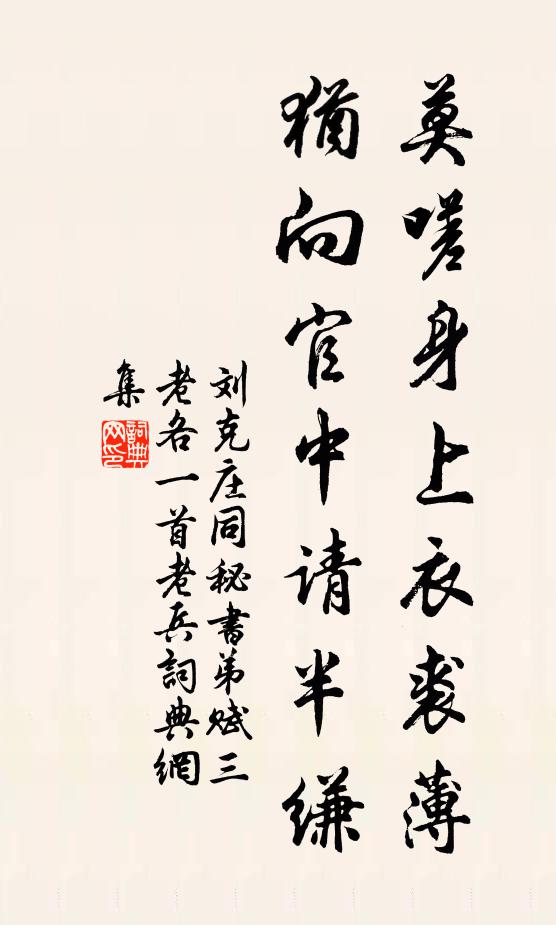 莫嗟身上衣裘薄
犹向官中请半缣
刘克庄同秘書弟赋三
老各一首老兵詞典網
集
詞典
网印